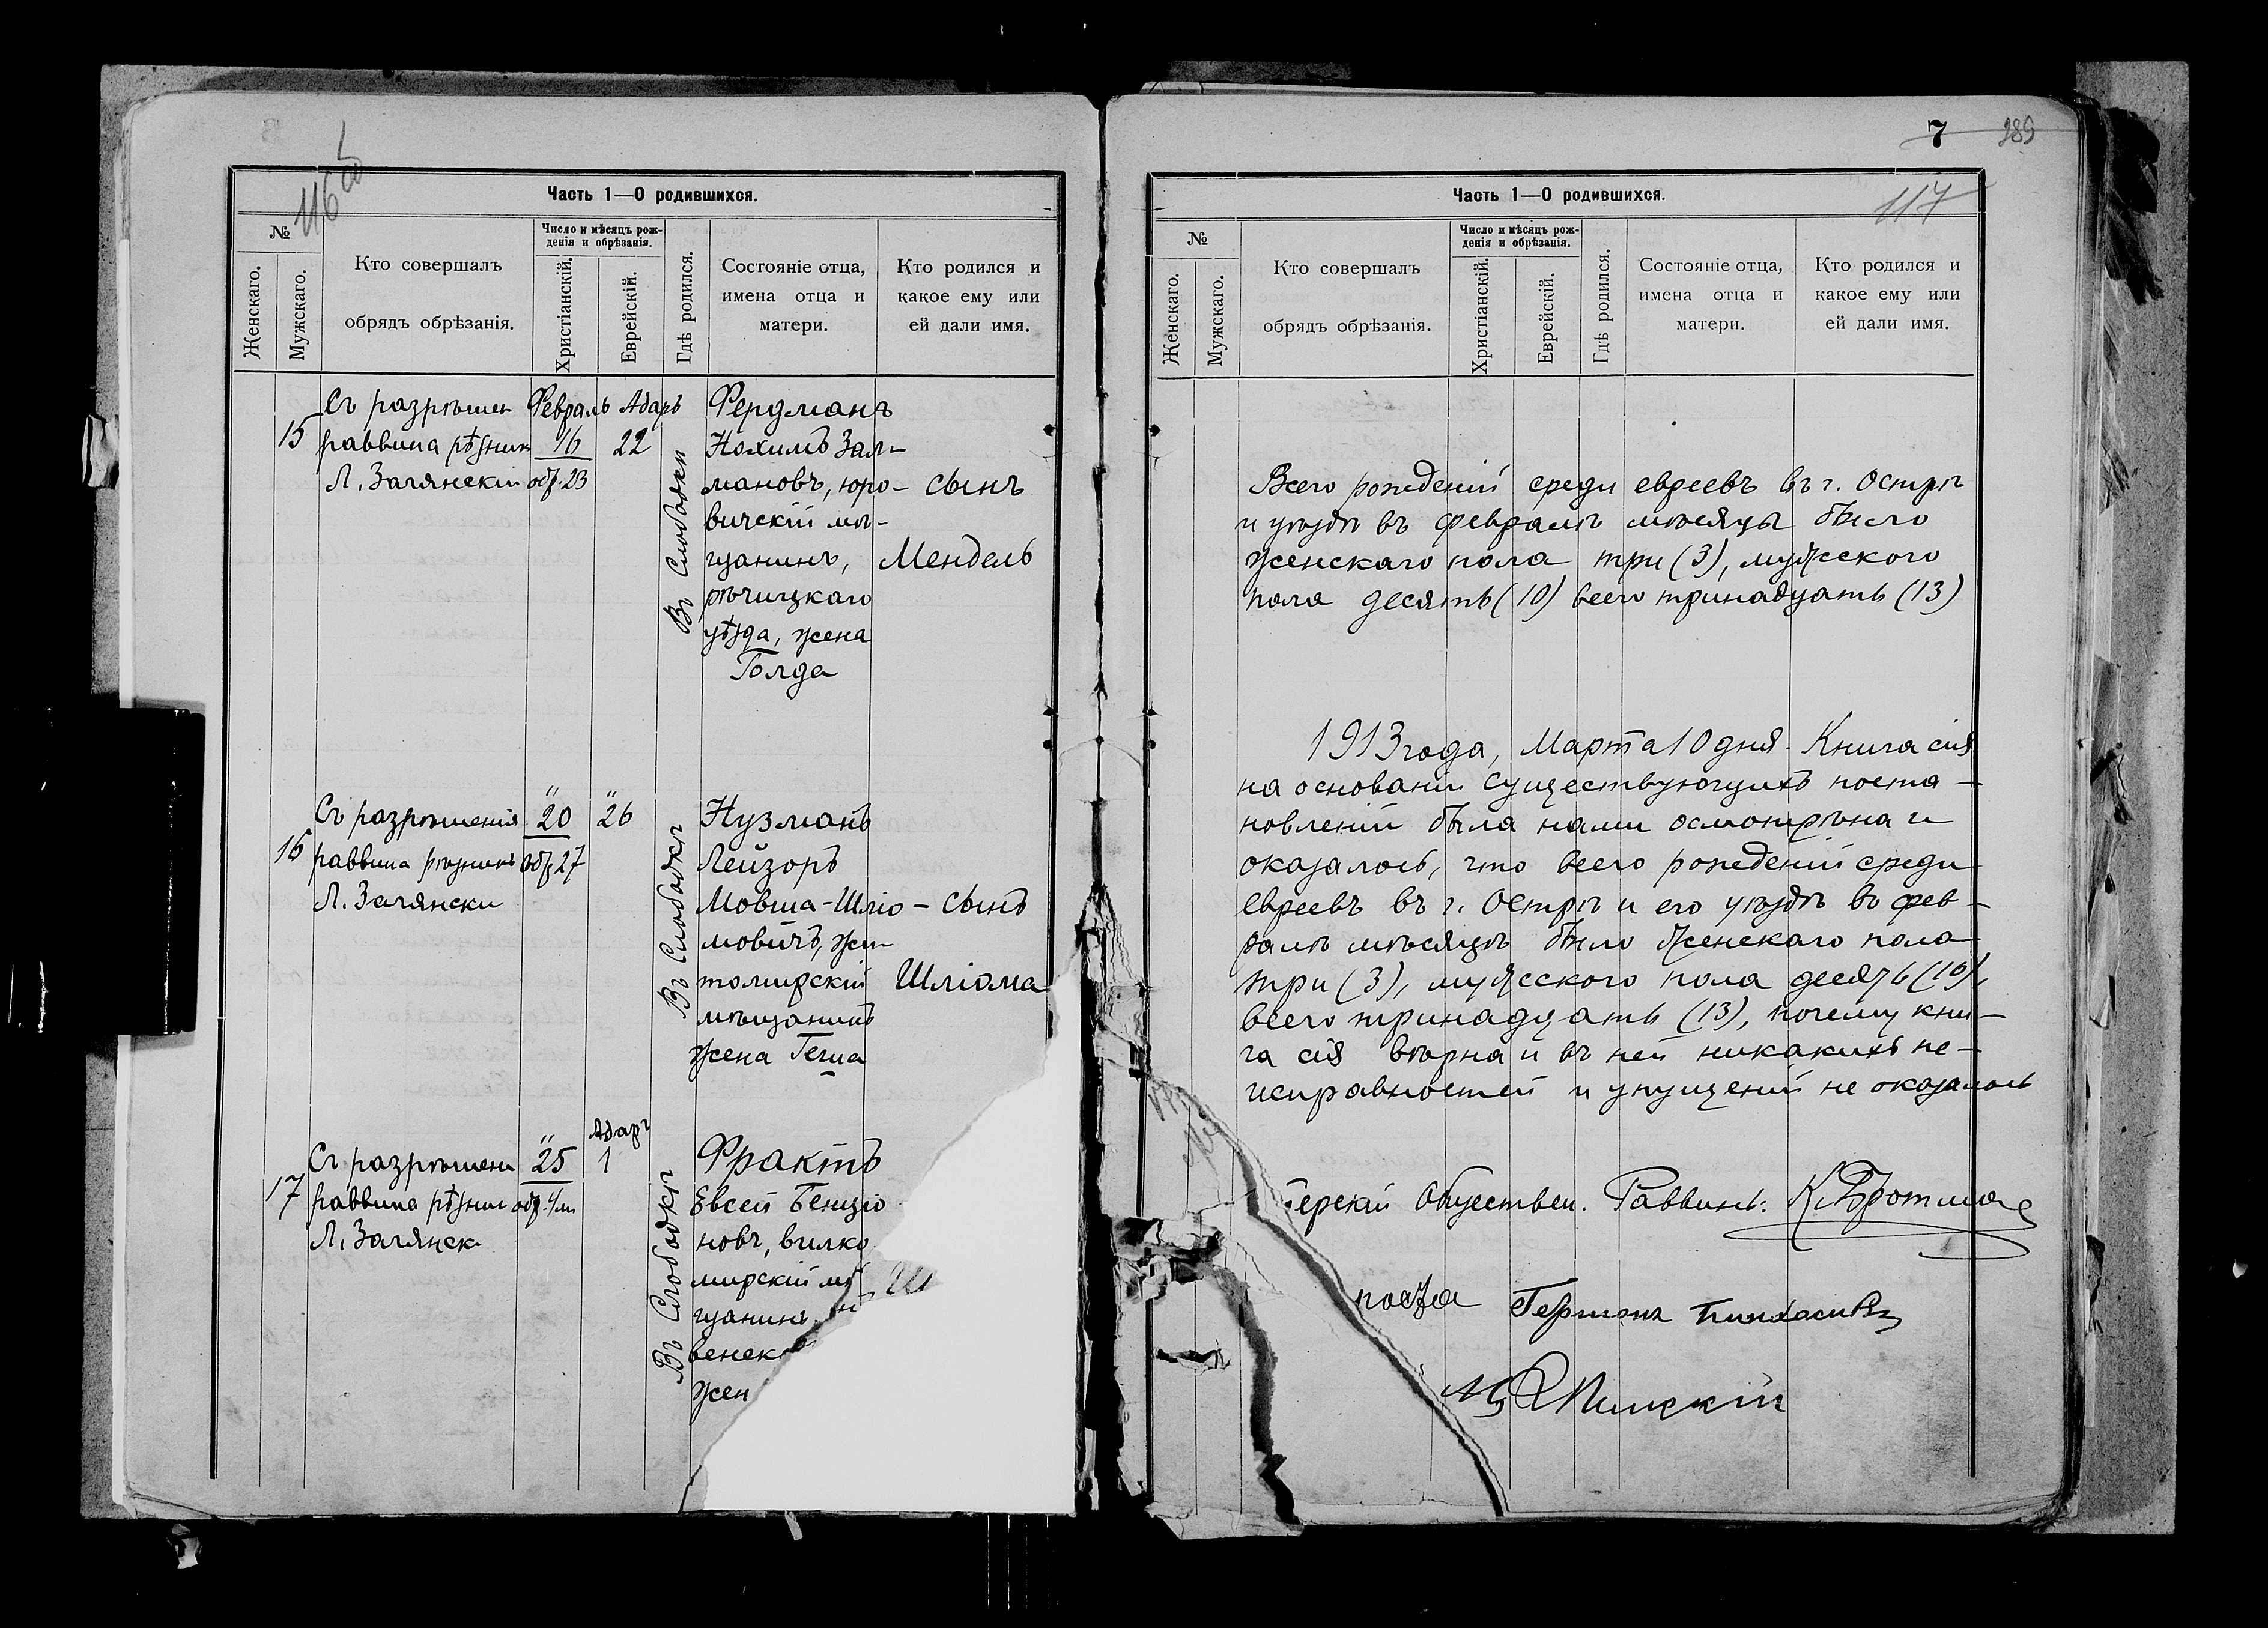 116 об
Часть 1—О родившихся.
№
Женскаго.
Мужскаго.
Кто совершалъ
обрядъ обрѣзанія.
Число и мѣсяцъ рож-
денія и обрѣзанія.
Христіанскій.
Еврейскій.
Гдѣ родился.
Состояніе отца,
имена отца и
матери.
Кто родился и
какое ему или
ей дали имя.
15
Съ разрѣшен
раввина рѣзник
Л. Загянскій
Февраль
16
обр. 23
Адаръ
22
Въ Слободки
Фердманъ
Нохимъ Зал-
мановъ, юро-
вичскій мѣ-
щанинъ,
рѣчицкаго
уѣзда, жена
Голда
сынъ
Мендель
16
Съ разрѣшенія
раввина рѣзникъ
Л. Загянски
" 20
обр 27
" 26
Въ Слободкѣ
Нузманъ
Лейзоръ
Мовша-Шліо-
мовичъ, жи-
томирскій
мѣщанинъ
жена Геша
сынъ
Шліома
17
Съ разрѣшени
раввина рѣзник
Л. Загянск
" 25
Адаръ
1
Въ Слободкѣ
Фрактъ
Евсей Бенціо
новъ, вилко
мирскій мѣ
щанинъ
венск
жен
Ш
7
289
117
Часть 1—О родившихся.
№
Женскаго.
Мужскаго.
Кто совершалъ
обрядъ обрѣзанія.
Число и мѣсяцъ рож-
денія и обрѣзанія.
Христіанскій.
Еврейскій.
Гдѣ родился.
Состояніе отца,
имена отца и
матери.
Кто родился и
какое ему или
ей дали имя.
Всего рожденій среди евреевъ въ г. Острѣ
и уѣздѣ въ февралѣ мѣсяцы было
женскаго пола три (3), мужского
пола десять (10) всего тринадцать (13)
1913 года, Марта 10 дня. Книга сія
на основаніи существующихъ поста-
новленій была нами осмотрѣна и
оказалось, что всего рожденій среди
евреевъ въ г. Острѣ и его уѣздѣ въ фев-
ралѣ мѣсяцѣ было женскаго пола
три (3), мужсского пола десять (10),
всего тринадцать (13), почему кни-
га сія вѣрна и въ ней никакихъ не-
исправностей и упущеній не оказалось
терскій Обществен. Раввинъ:
Германъ